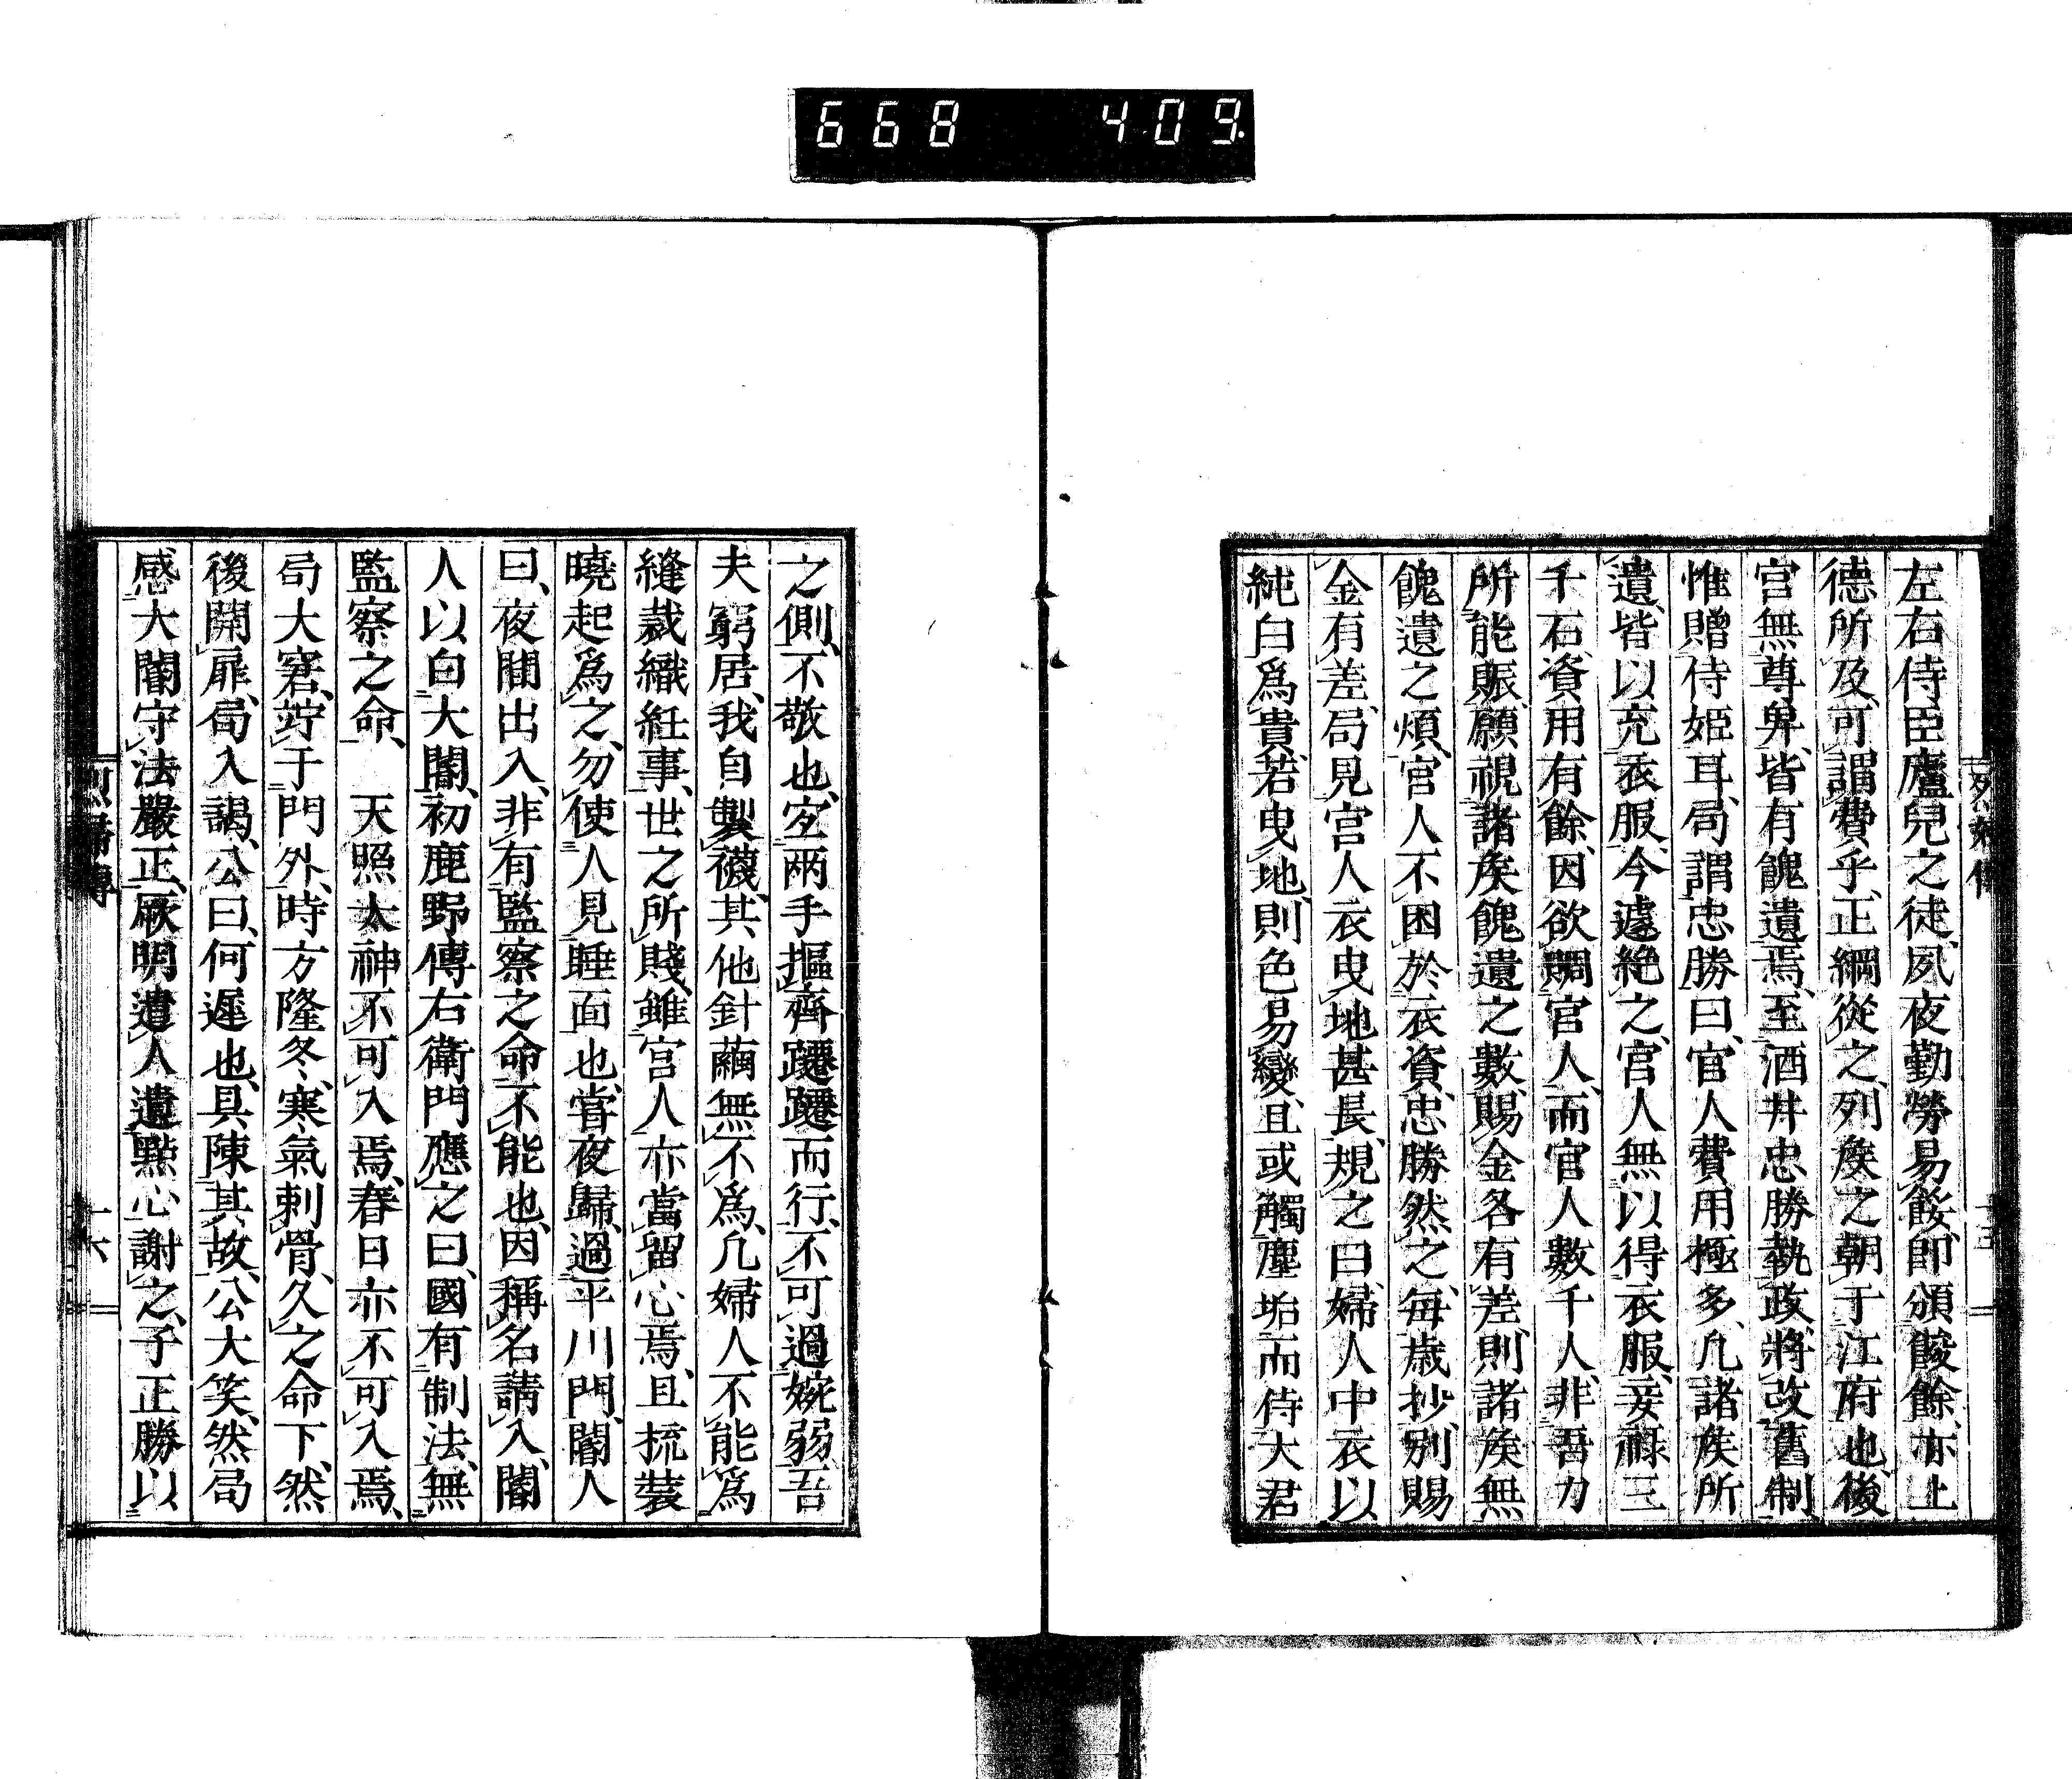 668 409.
列婦傳 十五
左右侍臣廬兒之徒、夙夜勤勞易餒、卽頒餕餘、亦上
德所及、可謂費乎、正綱從之、列矦之朝于江府也、後
宮無尊卑、皆有餽遺焉、至酒井忠勝執政、將改舊制
惟贈侍姫耳、局謂忠勝曰、官人費用極多、凡諸矦所
遺、皆以充衣服、今遽絶之、宮人無以得衣服、妾祿三
千石、資用有餘、因欲賙官人、而官人數千人、非吾力
所能賑、願視諸矦餽遺之數、賜金各有差、則諸矦無
餽遺之煩、宮人不困於衣資、忠勝然之、每歳抄、別賜
金有差、局見宮人衣曳地甚長、規之曰、婦人中衣以
純白爲貴、若曳地、則色易變、且或觸塵垢而侍大君
之側、不敬也、宐兩手摳齊躚躚而行、不可過婉弱、吾
夫窮居、我自製襪、其他針繭無不爲、凡婦人不能爲
縫裁織紝事、世之所賤、雖宮人亦當留心焉、且梳裝
曉起爲之、勿使人見睡面也、嘗夜歸、過平川門、閽人
曰、夜間出入、非有監察之命不能也、因稱名請入、閽
人以白大閽、初鹿野傳右衛門應之曰、國有制法、無
監察之命、 天照太神不可入焉、春日亦不可入焉、
局大窘、竚于門外、時方隆冬、寒氣刺骨、久之命下、然
後開扉、局入謁、公曰、何遲也、具陳其故、公大笑、然局
感大閽守法嚴正、厥明遣人遺點心謝之、子正勝以
列婦傳 十六